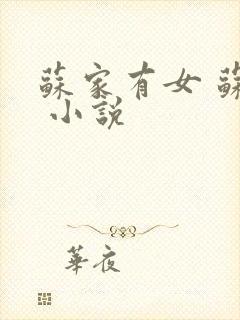 蘇家有女 蘇
小說
華夜